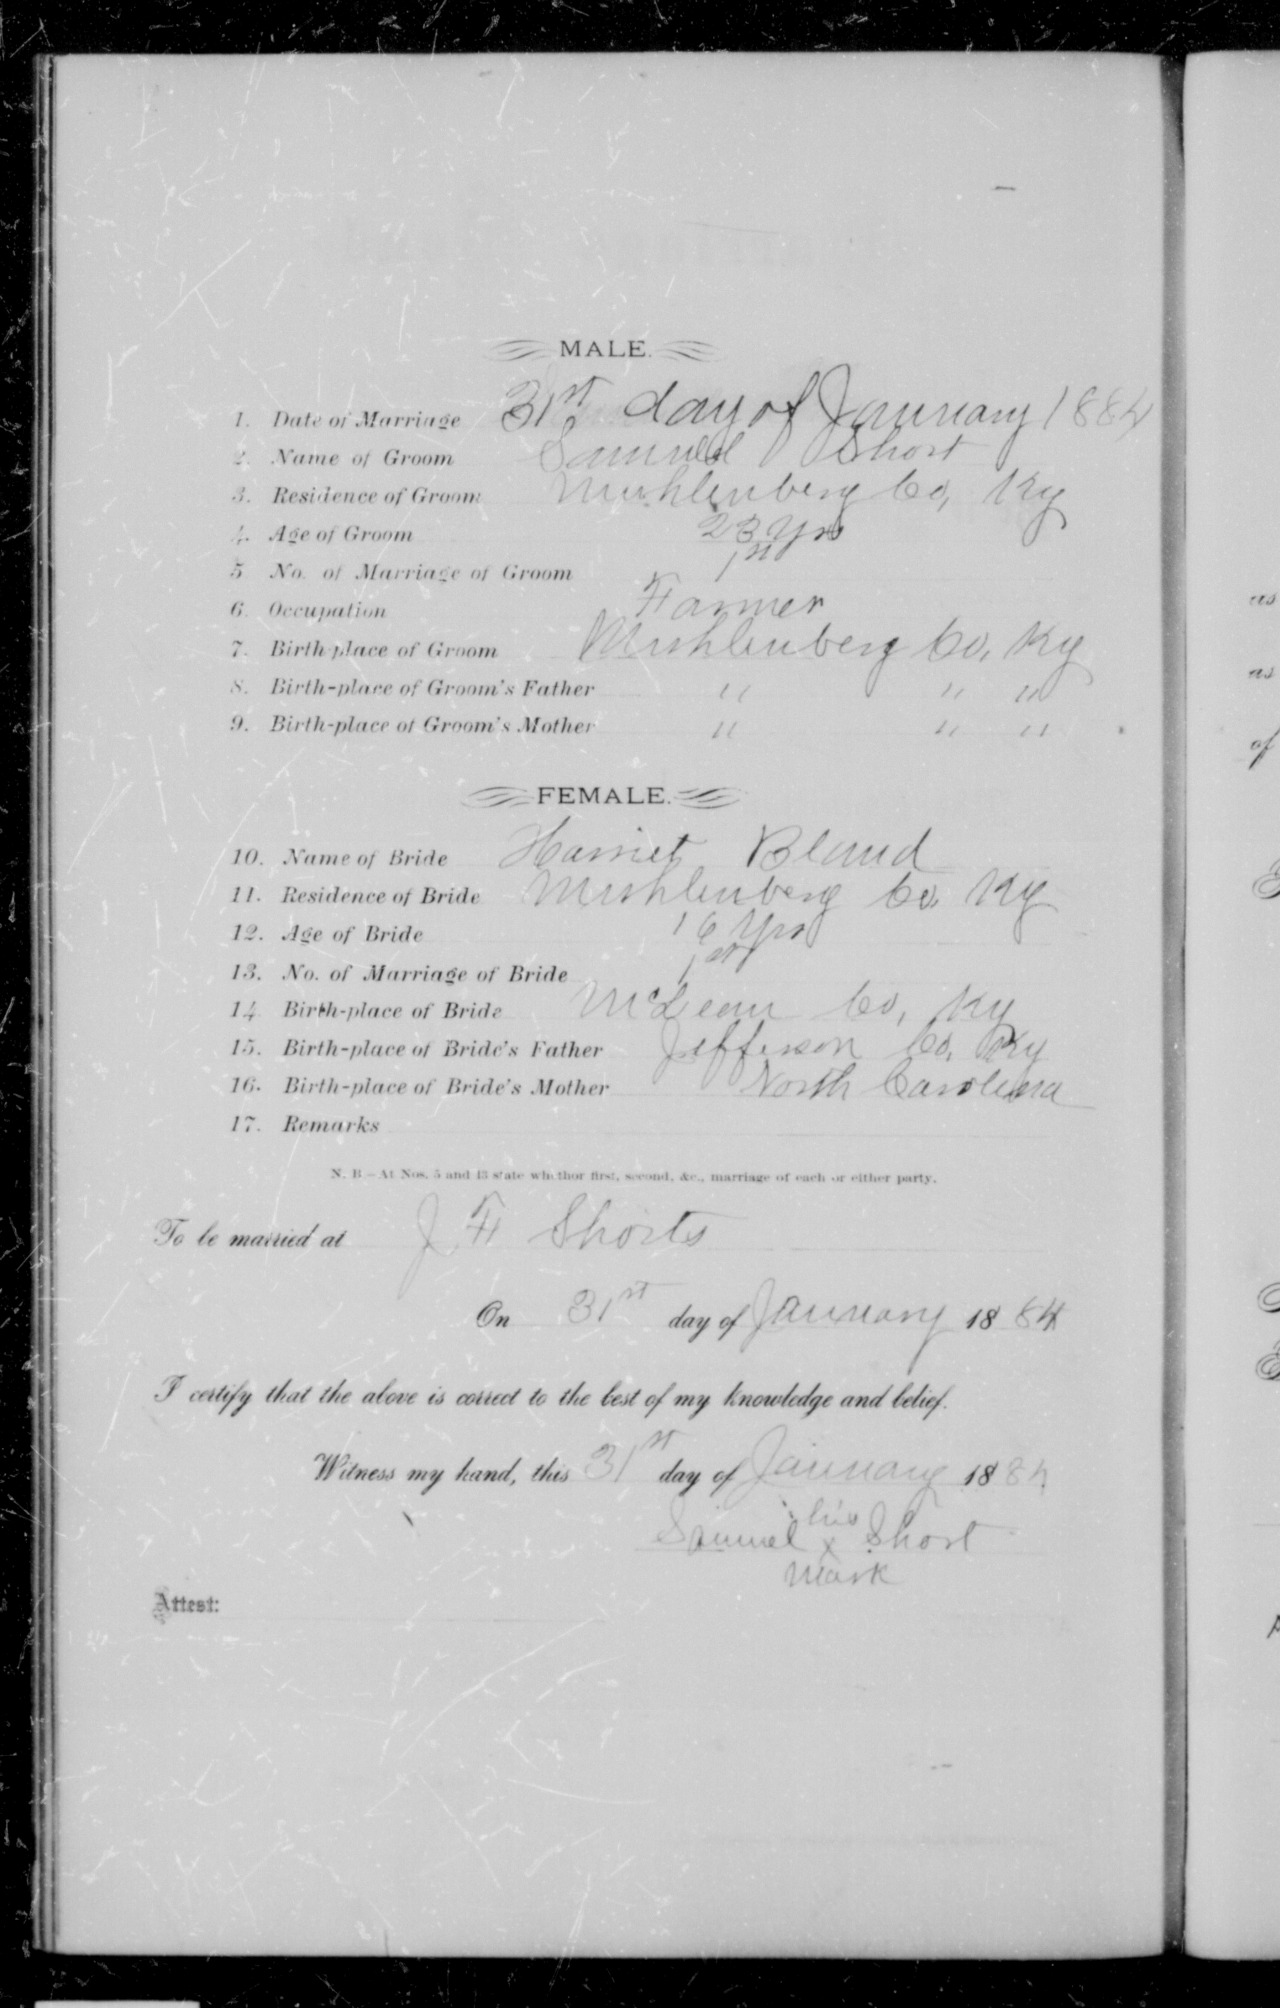 MALE.
1. Date of Marriage 31st day of January 1884
2. Name of Groom Samuel Short
3. Residence of Groom Muhlenberg Co, Ky
4. Age of Groom 23 Yrs
5 No. of Marriage of Groom 1st
6. Occupation Farmer
7. Birth-place of Groom Muhlenberg Co, Ky
8. Birth-place of Groom's Father " " "
9. Birth-place of Groom's Mother " " "
FEMALE.
10. Name of Bride Harriet Bland
11. Residence of Bride Muhlenberg Co, Ky
12. Age of Bride 16 Yrs
13. No. of Marriage of Bride 1st
14 Birth-place of Bride McLean Co, Ky
15. Birth-place of Bride's Father Jefferson Co, Ky
16. Birth-place of Bride's Mother North Carolina
17. Remarks
N. B.—At Nos. 5 and 13 state whethor first, second, &c., marriage of each or either party.
To be married at J F Shorts
On 31st day of January 1884
I certify that the above is correct to the best of my knowledge and belief.
Witness my hand, this 31st day of January 1884
his
Samuel x Short
mark
Attest:
as
as
of